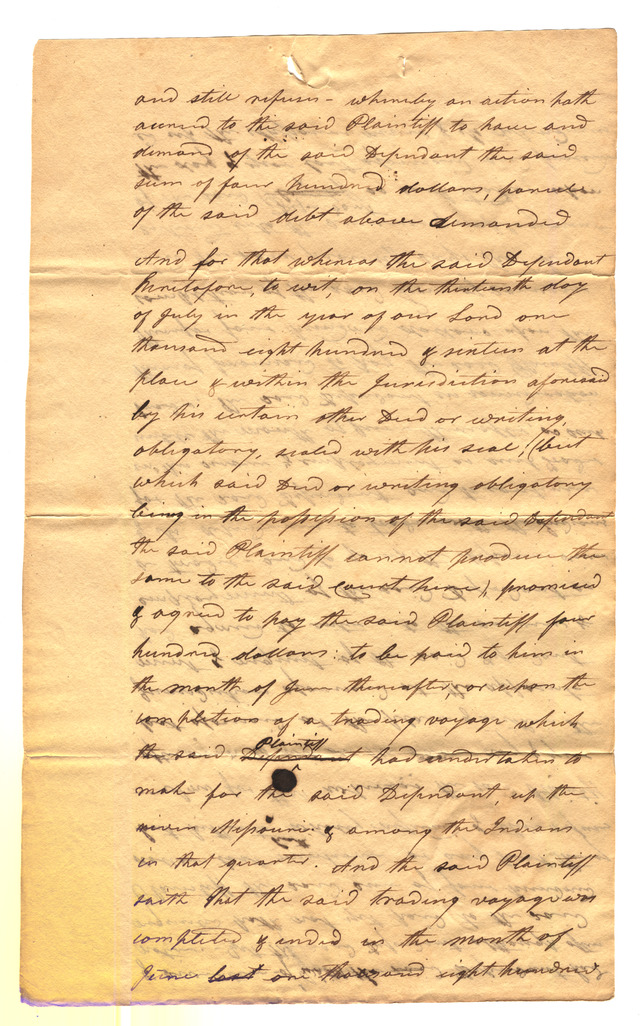 and still refuses – whereby an action hath
accrued to the said Plaintiff to have and
demand of the said Defendant the said
sum of four hundred dollars, parcel
of the said debt above demanded
And for that whereas the said Defendant
heretofore, to wit, on the thirteenth day
of July in the year of our Lord one
thousand eight hundred & sixteen at the
place & within the Jurisdiction aforesaid
by his certain other Deed or writing
obligatory, sealed with his seal, (but
which said Deed or writing obligatory
being in the possession of the said Defendant
the said Plaintiff cannot produce the
same to the said Court here), promised
& agreed to pay the said Plaintiff four
hundred dollars: to be paid to him in
the month of June thereafter, or upon the
completion of a trading voyage which
Plaintiff
the said Defendant had undertaken to
make for the said Defendant, up the
river Missouri & among the Indians
in that quarter. And the said Plaintiff
saith that the said trading voyage was
completed & ended in the month of
June last one thousand eight hundred